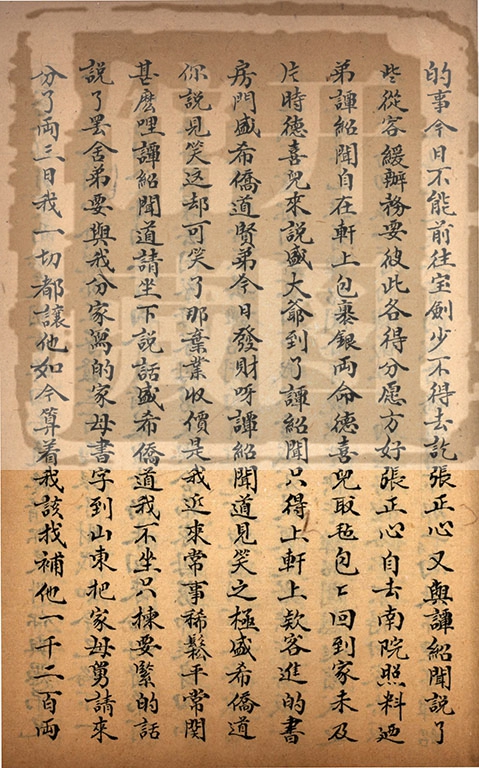 的事今日不能前往宝劍少不得去訖張正心又與譚紹聞說了
些從容緩辦務要彼此各得分愿方好張正心自去南院照料廼
弟譚紹聞自在軒上包裹銀両命德喜兒取毡包〻回到家未及
片時德喜兒來說盛大爺到了譚紹聞只得上軒上欵客進的書
房門盛希僑道賢弟今日發財呀譚紹聞道見笑之極盛希僑道
你說見笑这却可笑了那棄業収價是我近來常事稀鬆平常関
甚麽哩譚紹聞道請坐下說話盛希僑道我不坐只揀要緊的話
說了罢舍弟要與我分家寫的家母書字到山東把家母舅請來
分了両三日我一切都讓他如今算着我該找補他一千二百両